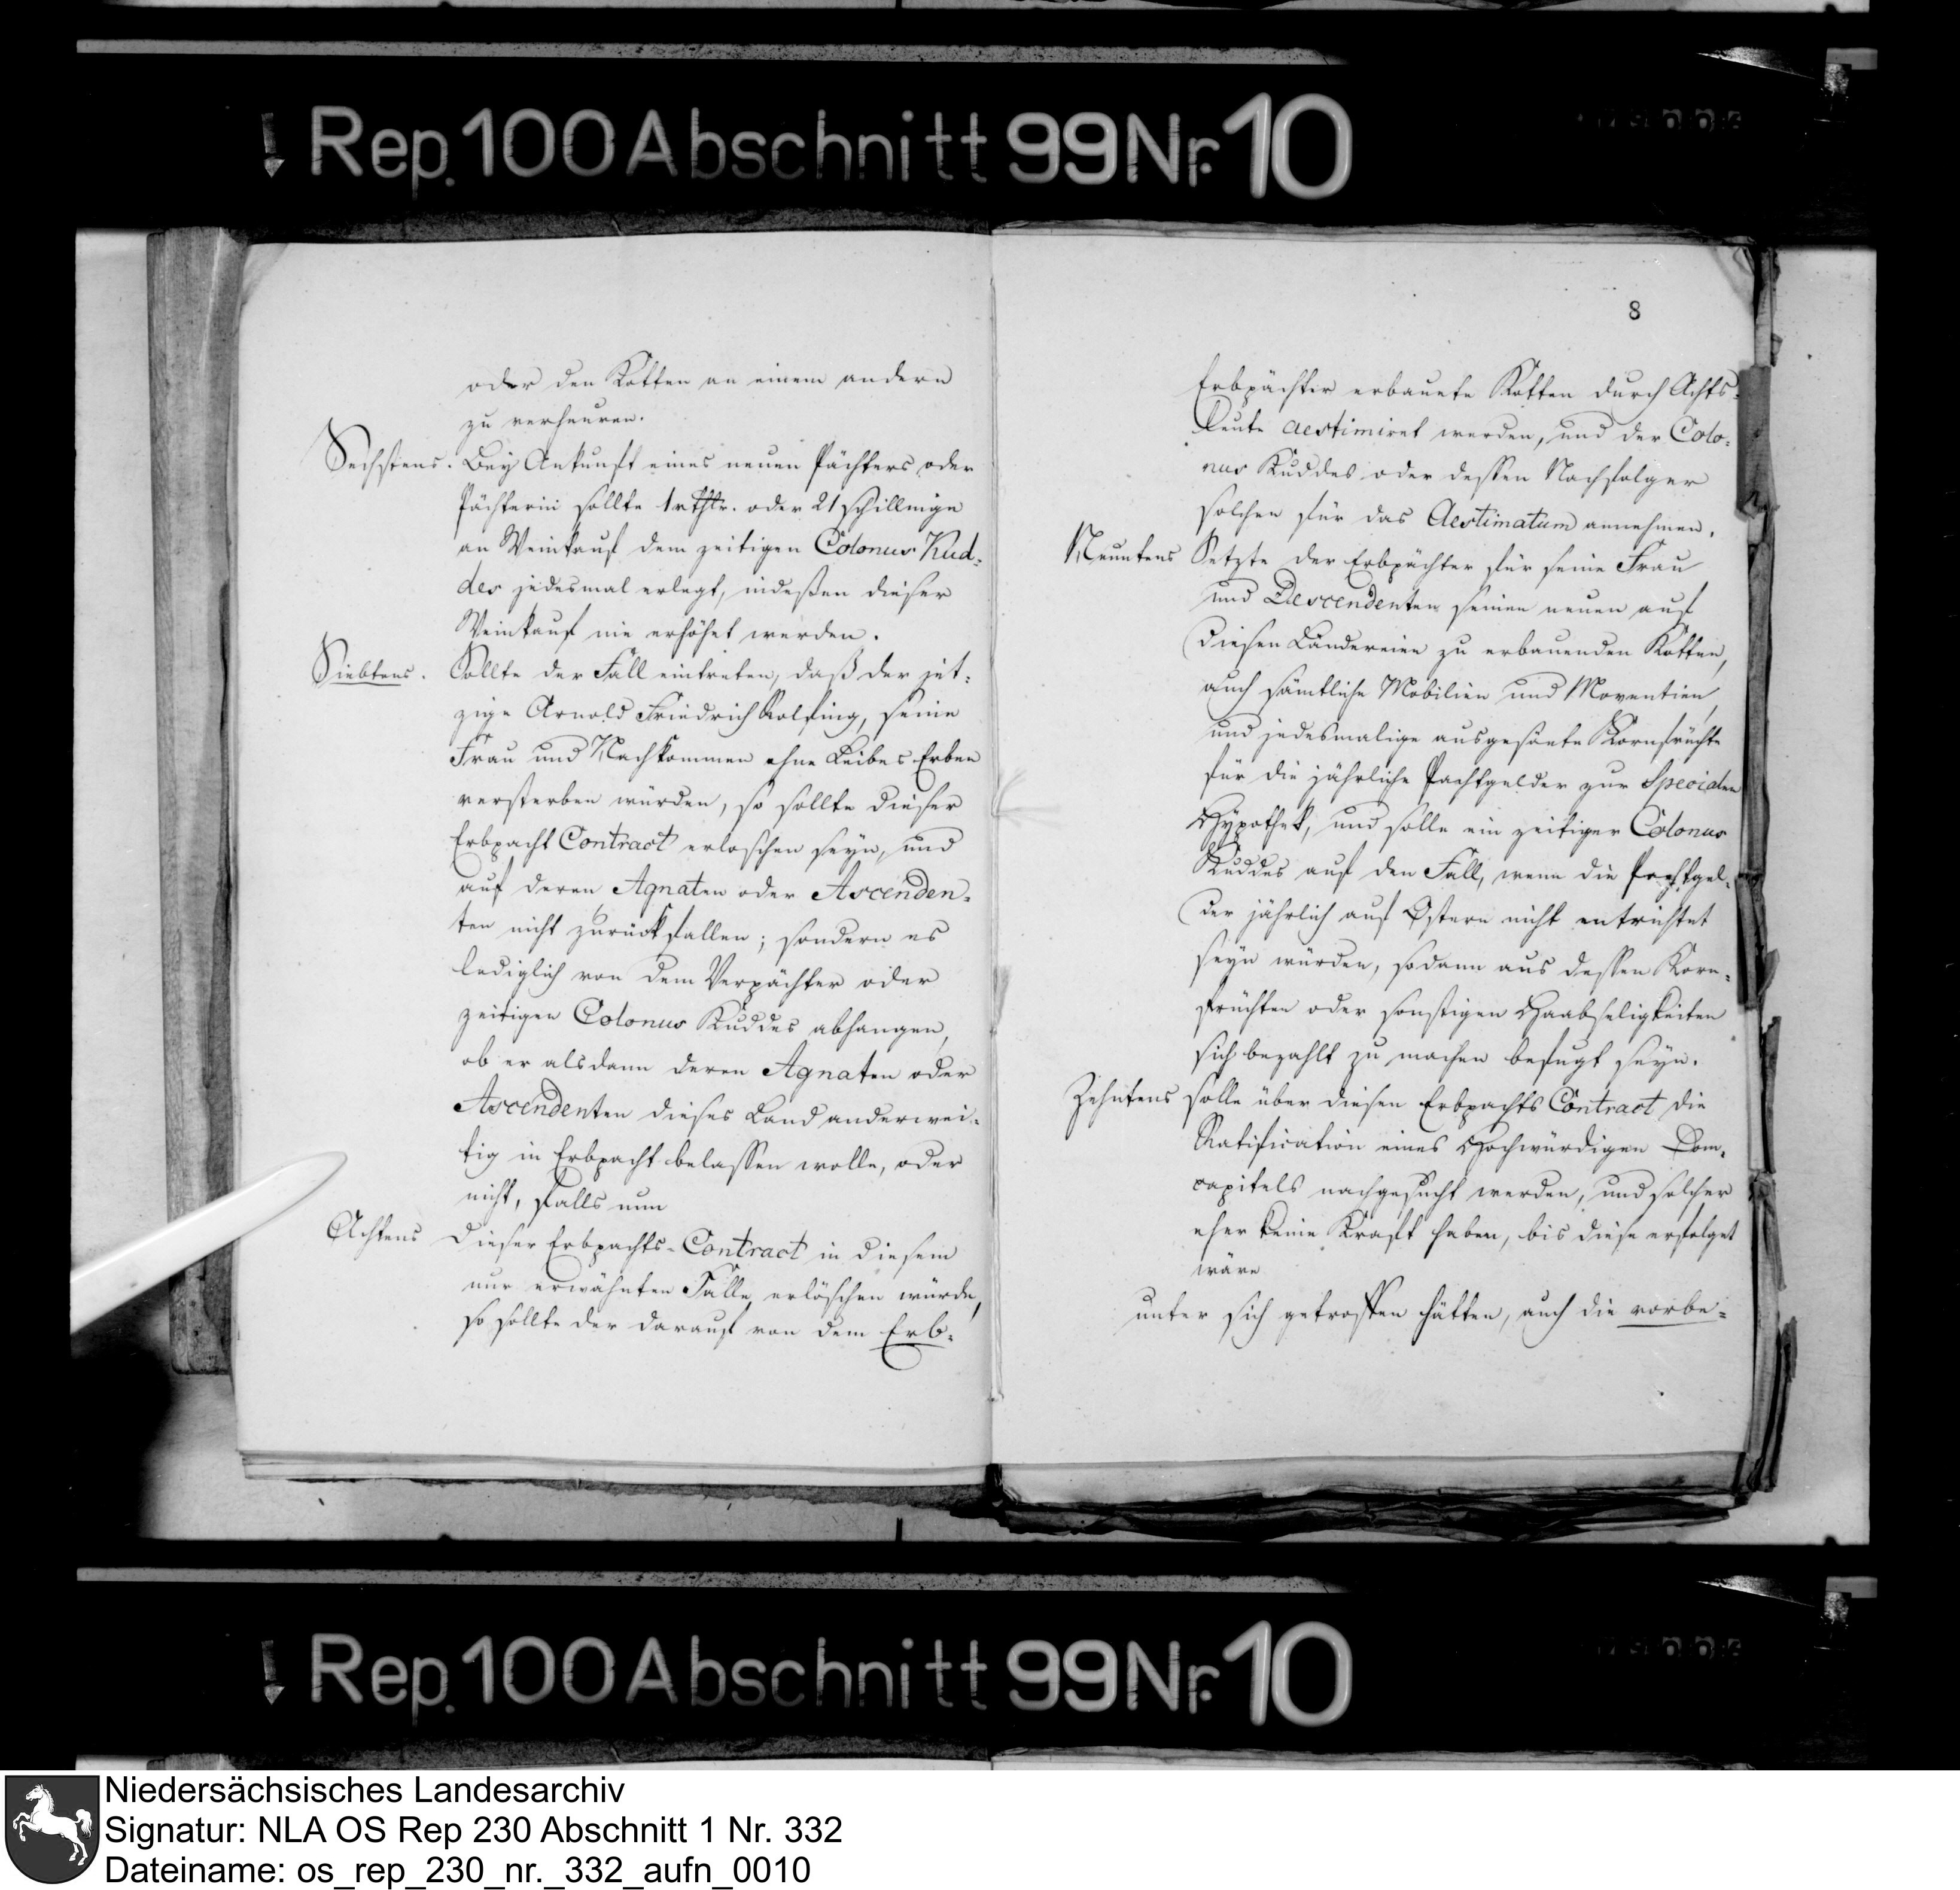 Rep. 100 Abschnitt 99 Nr. 10
oder den Kotten an einem andern
zu verheuren.
Sechstens. Bey Ankunft eines neuen Pächters oder
Pächterin sollte 1 rthlr. oder 21 schillinge
an Weinkauf dem zeitigen Colonus Kud-
des jedesmal erlegt, indeßen dieser
Weinkauf nie erhöhet werden.
Siebtens. Sollte der Fall eintreten, daß der jet-
zige Arnold Friedrich Rolfing, seine
Frau und Nachkommen ohne Leibes Erben
versterben würden, so sollte dieser
Erbpacht Contract erloschen seyn, und
auf deren Agnaten oder Ascenden-
ten nicht zurückfallen; sondern es
lediglich von dem Verpächter oder
zeitigen Colonus Kuddes abhangen,
ob er alsdann deren Agnaten oder
Ascendenten dieses Land anderwei-
tig in Erbpacht belassen wolle, oder
nicht, falls nun
Achtens dieser Erbpachts-Contract in diesem
nur erwähnten Falle erlöschen würde,
so sollte der darauf von dem Erb-
8
Erbpächter erbauete Kotten durch Achts-
leute aestimiret werden, und der Colo-
nus Kuddes oder dessen Nachfolger
solchen für das Aestimatum annehmen.
Neuntens Setzte der Erbpächter für seine Frau
und Descendenten seinen neuen auf
diesen Ländereien zu erbauenden Kotten,
auch sämtliche Mobilien und Moventien,
und jedesmalige ausgesäete Kornfrüchte
für die jährliche Pachtgelder zur Specialen
Hypothek, und solle ein zeitiger Colonus
Kuddes auf den Fall, wenn die Pachtgel-
der jährlich auf Ostern nicht entrichtet
seyn würden, sodann aus dessen Korn-
früchten oder sonstigen Haabseligkeiten
sich bezahlt zu machen befugt seyn.
Zehntens solle über diesen Erbpachts Contract die
Ratification eines Hochwürdigen Dom-
capitels nachgesucht werden, und solcher
eher keine Kraft haben, bis diese erfolget
wäre
unter sich getroffen hätten, auch die vorbe-
Rep. 100 Abschnitt 99 Nr. 10
Niedersächsisches Landesarchiv
Signatur: NLA OS Rep 230 Abschnitt 1 Nr. 332
Dateiname: os_rep_230_nr._332_aufn_0010